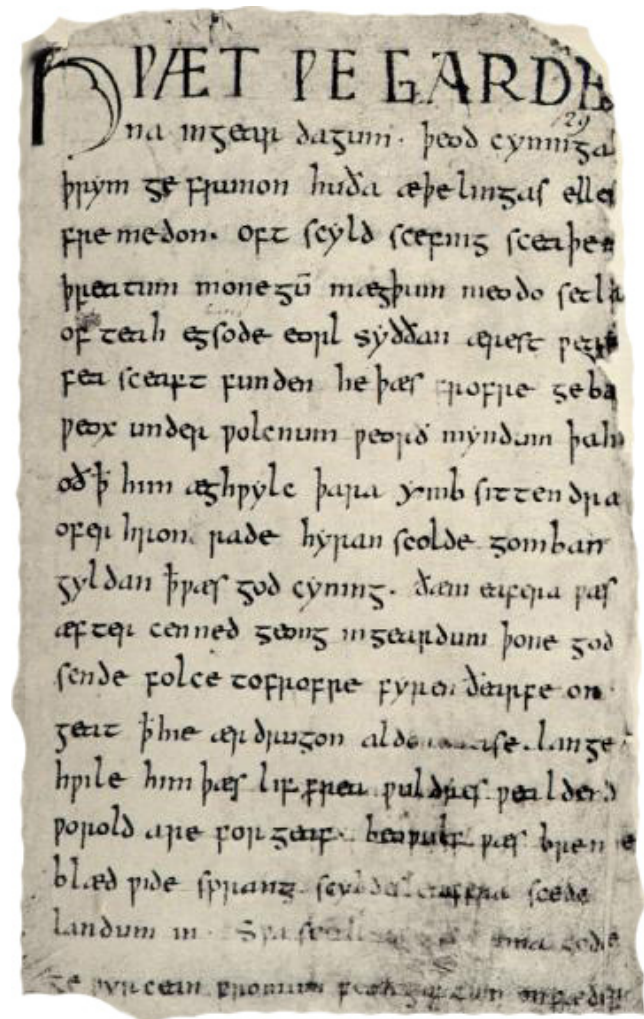 HǷÆT ǷE GARDE
129
na ingear dagum. þeod cyninga
þrym ge frunon huða æþelingas elle
fre medon. oft scyld scefing sceaþe
þreatum monegū mægþum meodo setla
of teah egsode eorl syððan ærest ƿear
fea sceaft funden he þæs frofre geba
ƿeox under ƿolcnum ƿeorð myndum þah
oð þ̄ him æghƿylc þara ymb sittendra
ofer hron rade hyran scolde gomban
gyldan þ̄ ƿæs god cyning. ðæm eafera ƿæs
æfter cenned geong ingeardum þone god
sende folce tofrofre fyren ðearfe on
geat þ̄ hie ær drugon aldor ase. lange
hƿile him þæs lif frea ƿuldres ƿealdend
ƿorold are for geaf. beoƿulf ƿæs breme
blæd ƿide sprang scyldes eafera scede
landum in. Sƿa sceal ma gode
ge ƿyrcean fromum feoh giftum on fæder